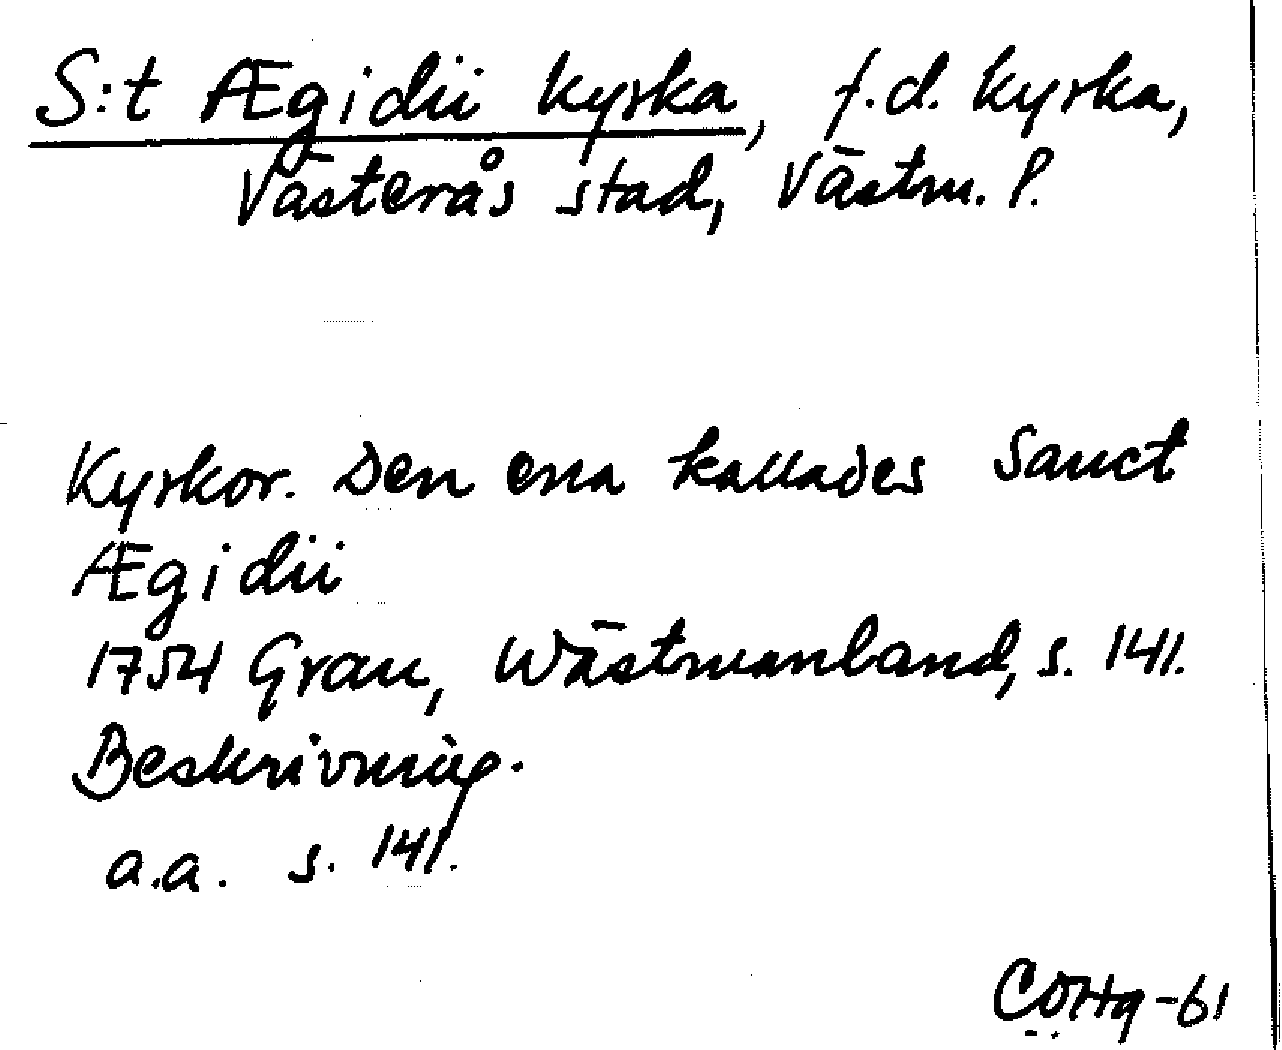 S:t Ægidii kyrka, f.d. kyrka,
Västerås stad, Västm. l.
Kyrkor. Den ena kallades Sanct
Ægidii
1754 Grau, Wästmanland, s. 141.
Beskrivning.
a.a. s. 141.